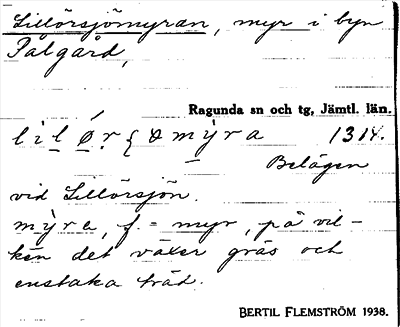 Lillörsjömyran, myr i byn
Pålgård,
Ragunda sn och tg, Jämtl. län.
1314.
Belägen
vid Lillörsjön.
mỳra, f. = myr, på vil-
ken det växer gräs och
enstaka träd.
BERTIL FLEMSTRÖM 1938.